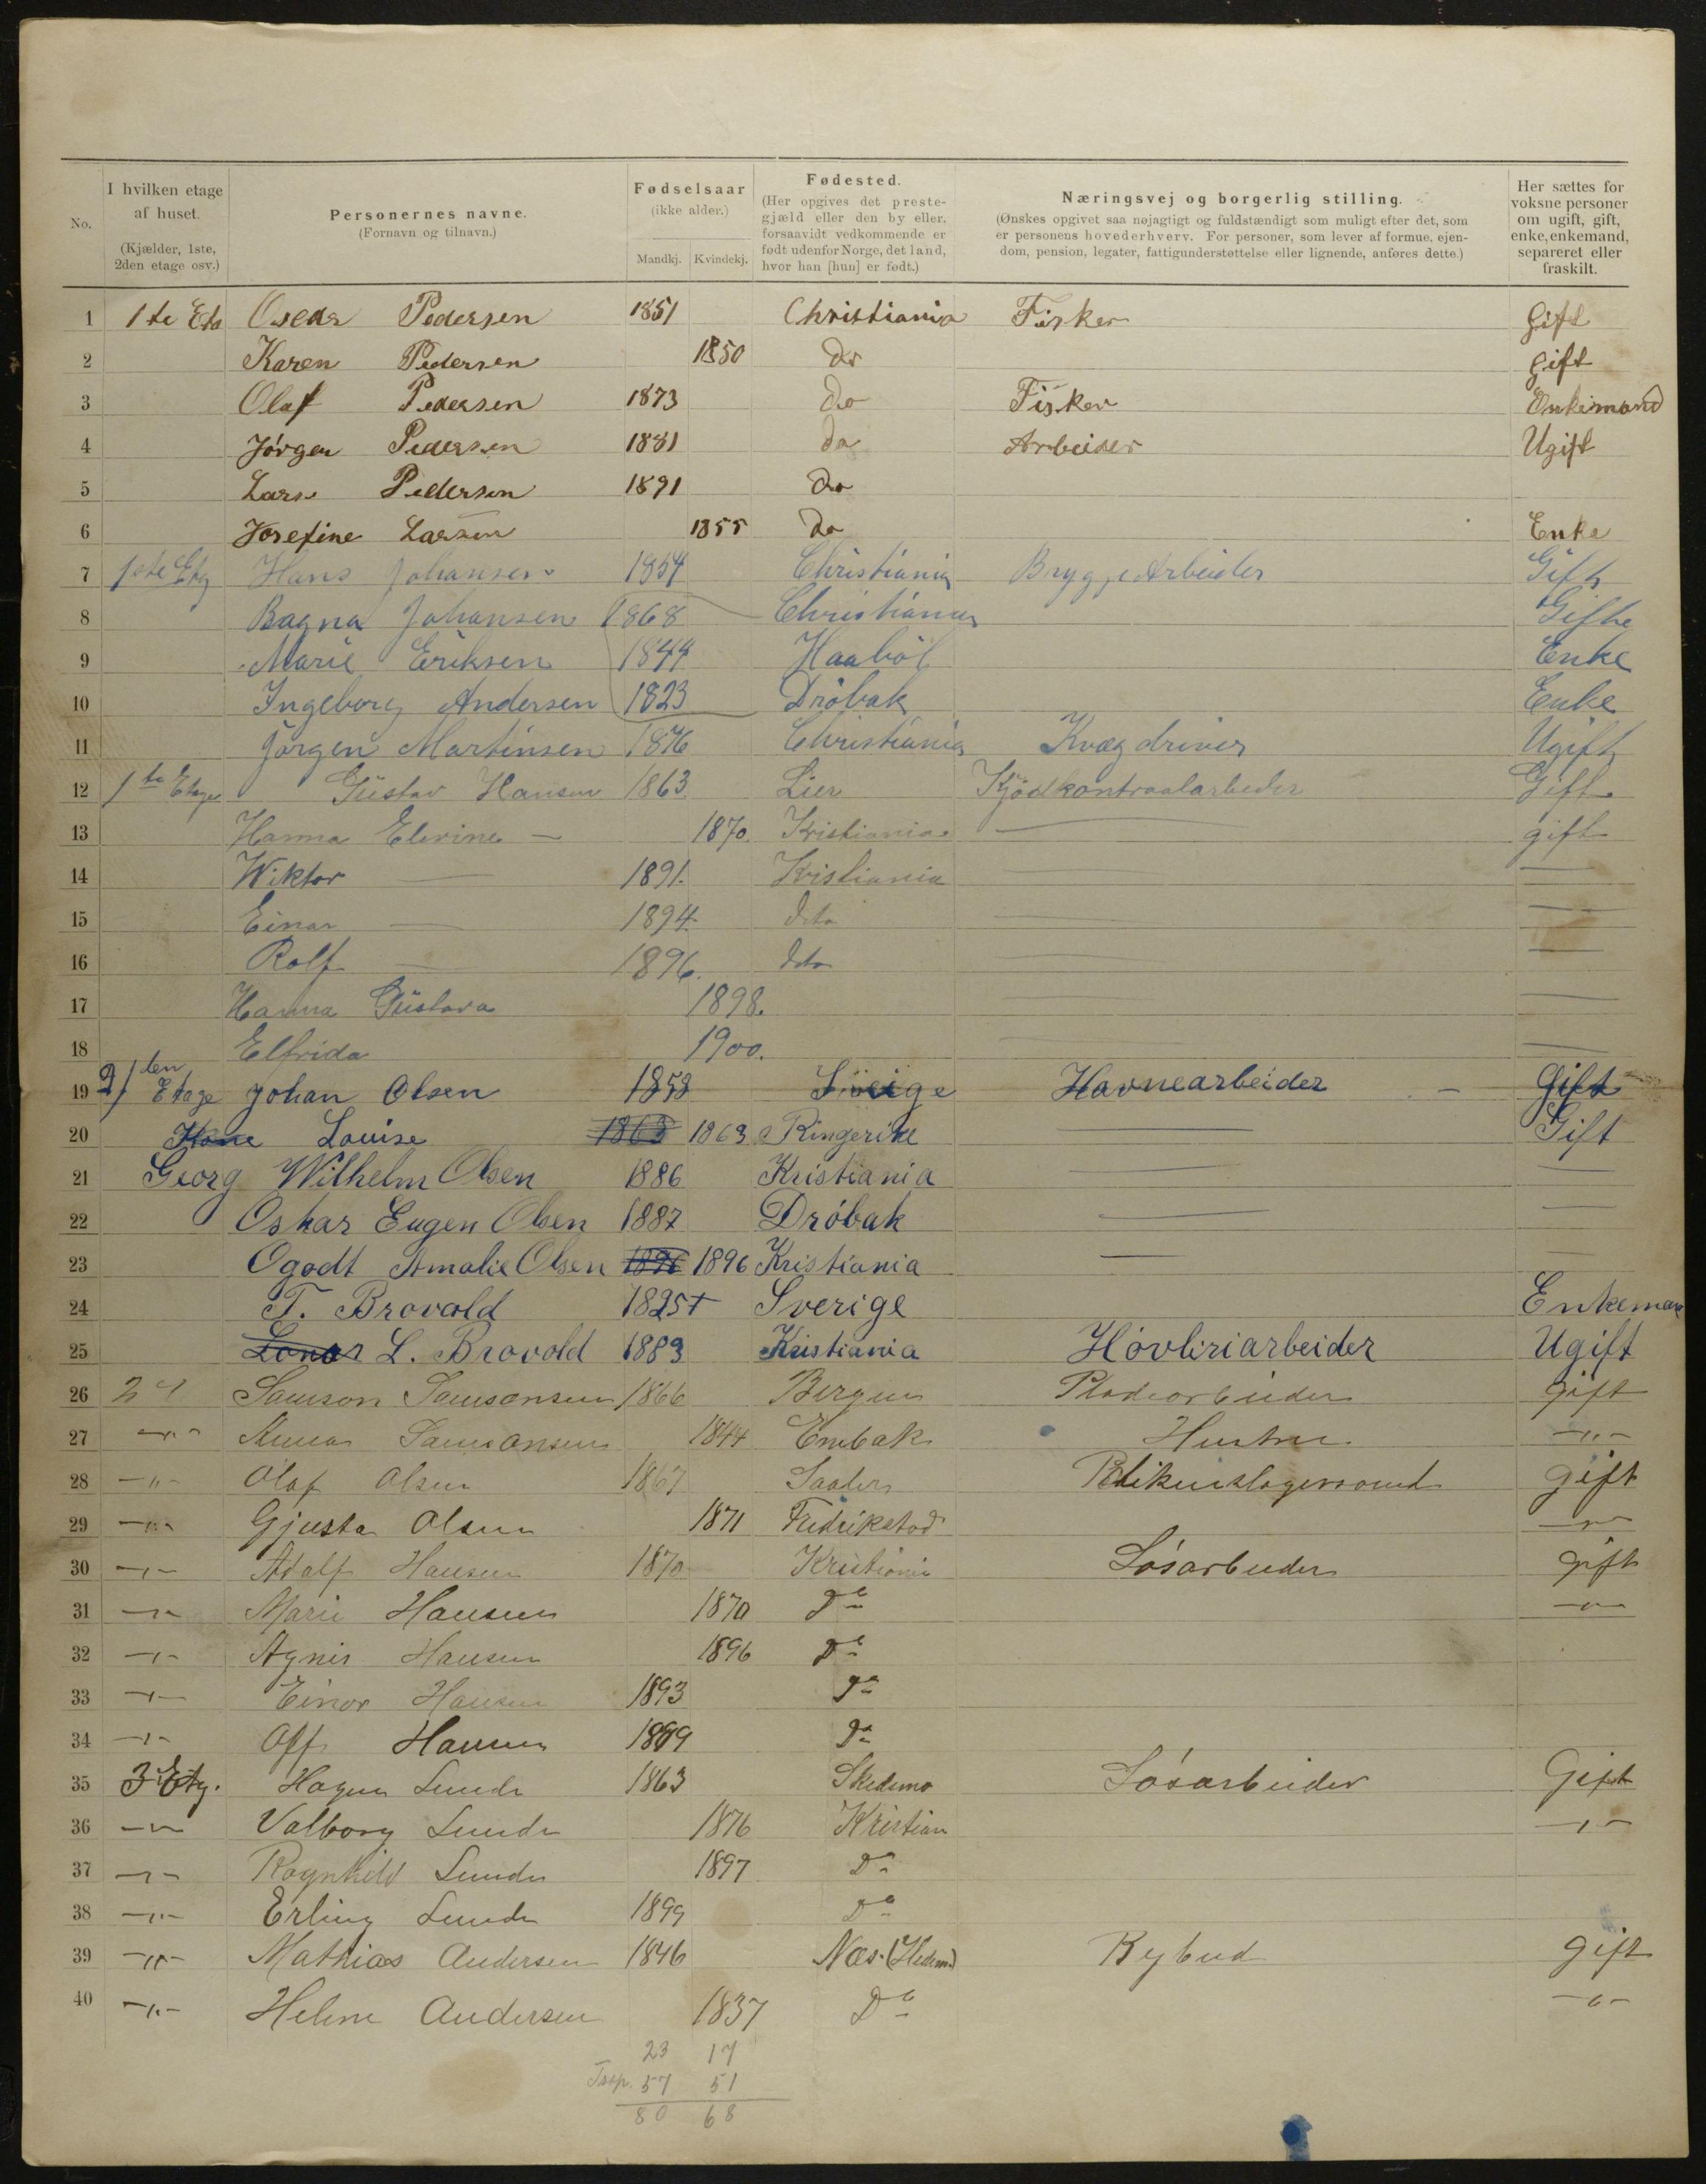 No.
I hvilken etage af huset. (Kjælder, 1ste, 2den etage osv.)
Personernes navne. (Fornavn og tilnavn.)
Fødselsaar (ikke alder.) Mandkj. Kvindekj.
Fødested. (Her opgives det prestegjæld eller den by eller, forsaavidt vedkommende er født udenfor Norge, det land, hvor han [hun] er født.)
Næringsvej og borgerlig stilling. (Ønskes opgivet saa nøjagtigt og fuldstændigt som muligt efter det, som er personens hovederhverv. For personer, som lever af formue, ejendom, pension, legater, fattigunderstøttelse eller lignende, anføres dette.)
Her sættes for voksne personer om ugift, gift, enke, enkemand, separeret eller fraskilt.
1 1te Eta Oscar Pedersen 1851 Christiania Fisker Gift
2 Karen Pedersen 1850 do gift
3 Olaf Pedersen 1873 do Fisker Enkemand
4 Jórgen Pedersen 1881 do Arbeider Ugift
5 Lars Pedersen 1891 do
6 Josefine Larsen 1855 do Enke
7 1ste Etg Hans Johansen 1854 Christiania BryggeArbeider Gift
8 Bagna Johansen 1868 Christiania Gifte
9 Marie Eriksen 1844 Haaböl Enke
10 Ingeborg Andersen 1823 Dröbak Enke
11 Jörgen Martinsen 1876 Christiania Kvægdriver Ugift
12 1te Etage Güstav Hansen 1863 Lier Kjödkontroalarbeider Gift.
13 Hanna Elevine — 1870. Kristiania — gift
14 Wiktor — 1891. Kristiania — —
15 Einar — 1894. dto — —
16 Rolf — 1896. dto — —
17 Hanna Güstava 1898. — —
18 Elfrida 1900. — —
19 2den Etage Johan Olsen 1858 Sverige Havnearbeider — Gift
20 Kone Louise 1863 1863 Ringerike — Gift
21 Georg Wilhelm Olsen 1886 Kristiania — —
22 Oskar Eugen Olsen 1887 Dróbak — —
23 Ogodt Amalie Olsen 1896 1896 Kristiania — —
24 T. Brovold 1825+ Sverige Enkeman
25 L. Brovold 1883 Kristiania Hóvleriarbeider Ugift
26 Samson Samsonsen 1866 Bergen Pladearbeider gift
27 —"— Anna Samsonsen 1844 Enebak Hustru —"—
28 —"— Olaf Olsen 1867 gift
29 —"— Gjusta Olsen 1871 Fredrikstad —"—
30 —"— Adolf Hansen 1870 Kristiania Lósarbeider gift
31 —"— Marie Hansen 1870 Do —"—
32 —"— Agnes Hansen 1896 Do
33 —"— Einar Hansen 1893 Do
34 —"— Hansen 1899 Do
35 3 Etg. Lunde 1863 Skedsmo Lósarbeider Gift
36 —"— Valborg Lunde 1876 Kristian —"—
37 —"— Ragnhild Lunde 1897 Do
38 —"— Erling Lunde 1899 Do
39 —"— Mathias Andersen 1846 Næs. (Hedem) Bybud gift
40 —"— Helene Andersen 1837 Do —"—
23 17
57 51
80 68